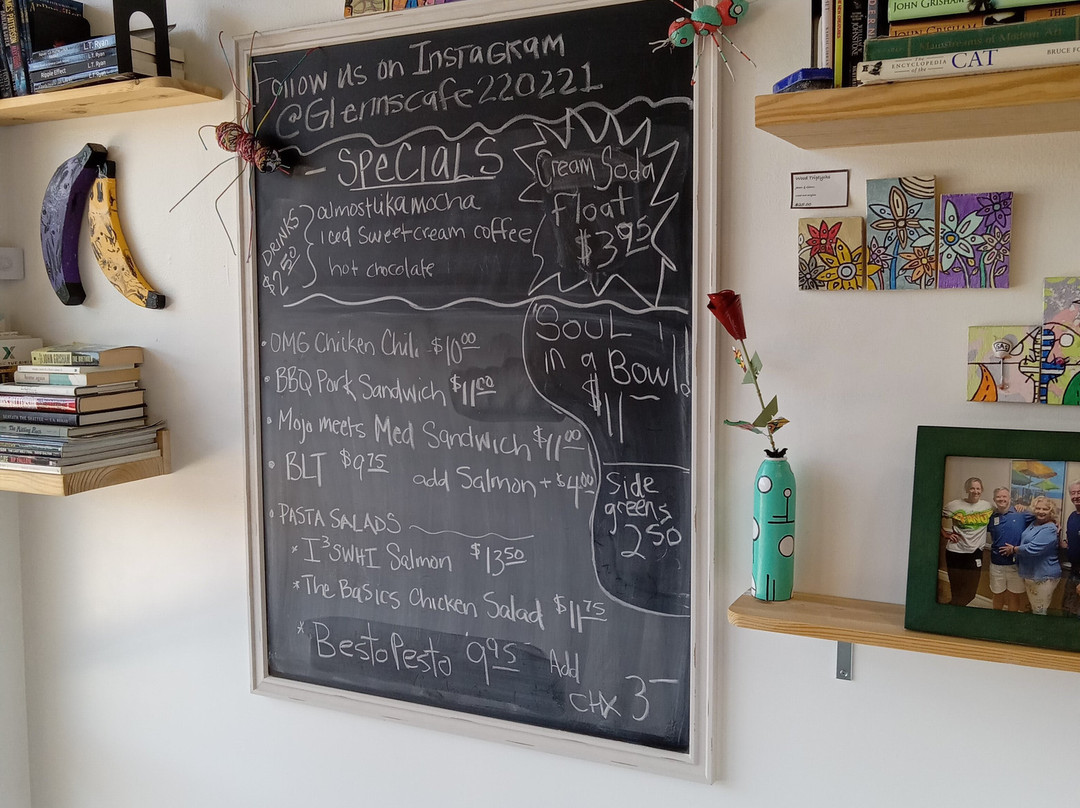 Follow us on Instagram
@Glennscafe220221
SPeCIALS
DRINKS
$2.50
almostlikamocha
iced sweetcream coffee
hot chocolate
Cream Soda
Float
$3.95
OMG Chicken Chili $10.00
BBQ Pork Sandwich $11.00
Mojo meets Med Sandwich $11.00
BLT $9.75
add Salmon + $4.00
PASTA SALADS
* I³SWHI Salmon $13.50
* The Basics Chicken Salad $11.75
* BestoPesto 9.95 Add
CHX 3—
"SOUL
in a Bowl"
$11—
Side
greens
2.50
L.T. Ryan
L.T. Ryan
Ripple Effect L.T. Ryan
L.T. Ryan
JOHN GRISHAM
JOHN GRISHAM
JOHN GRISHAM
Mainstreams of Modern Art
THE ENCYCLOPEDIA of the CAT BRUCE FO